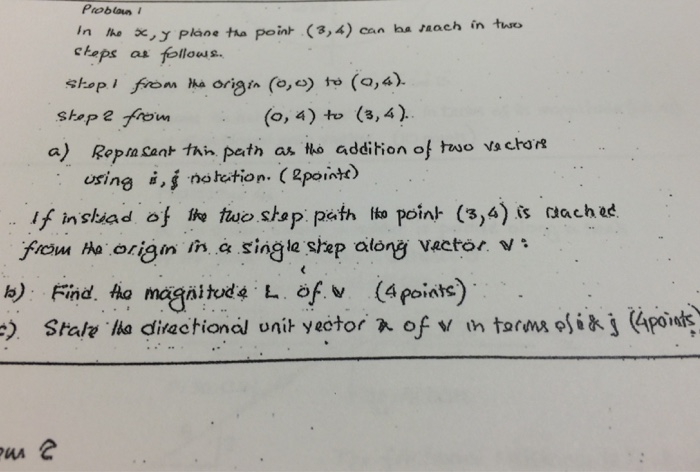 Problem 1
In the x, y plane the point (3,4) can be reach in two
steps as follows.
step 1 from the origin (0,0) to (0,4).
step 2 from (0,4) to (3,4).
a) Represent this path as the addition of two vectors
using i, j notation. (2points)
If instead of the two step path the point (3,4) is reached
from the origin in a single step along vector v:
b) Find the magnitude L of v (4points)
c) State the directional unit vector n of v in terms of i & j (4points)
2